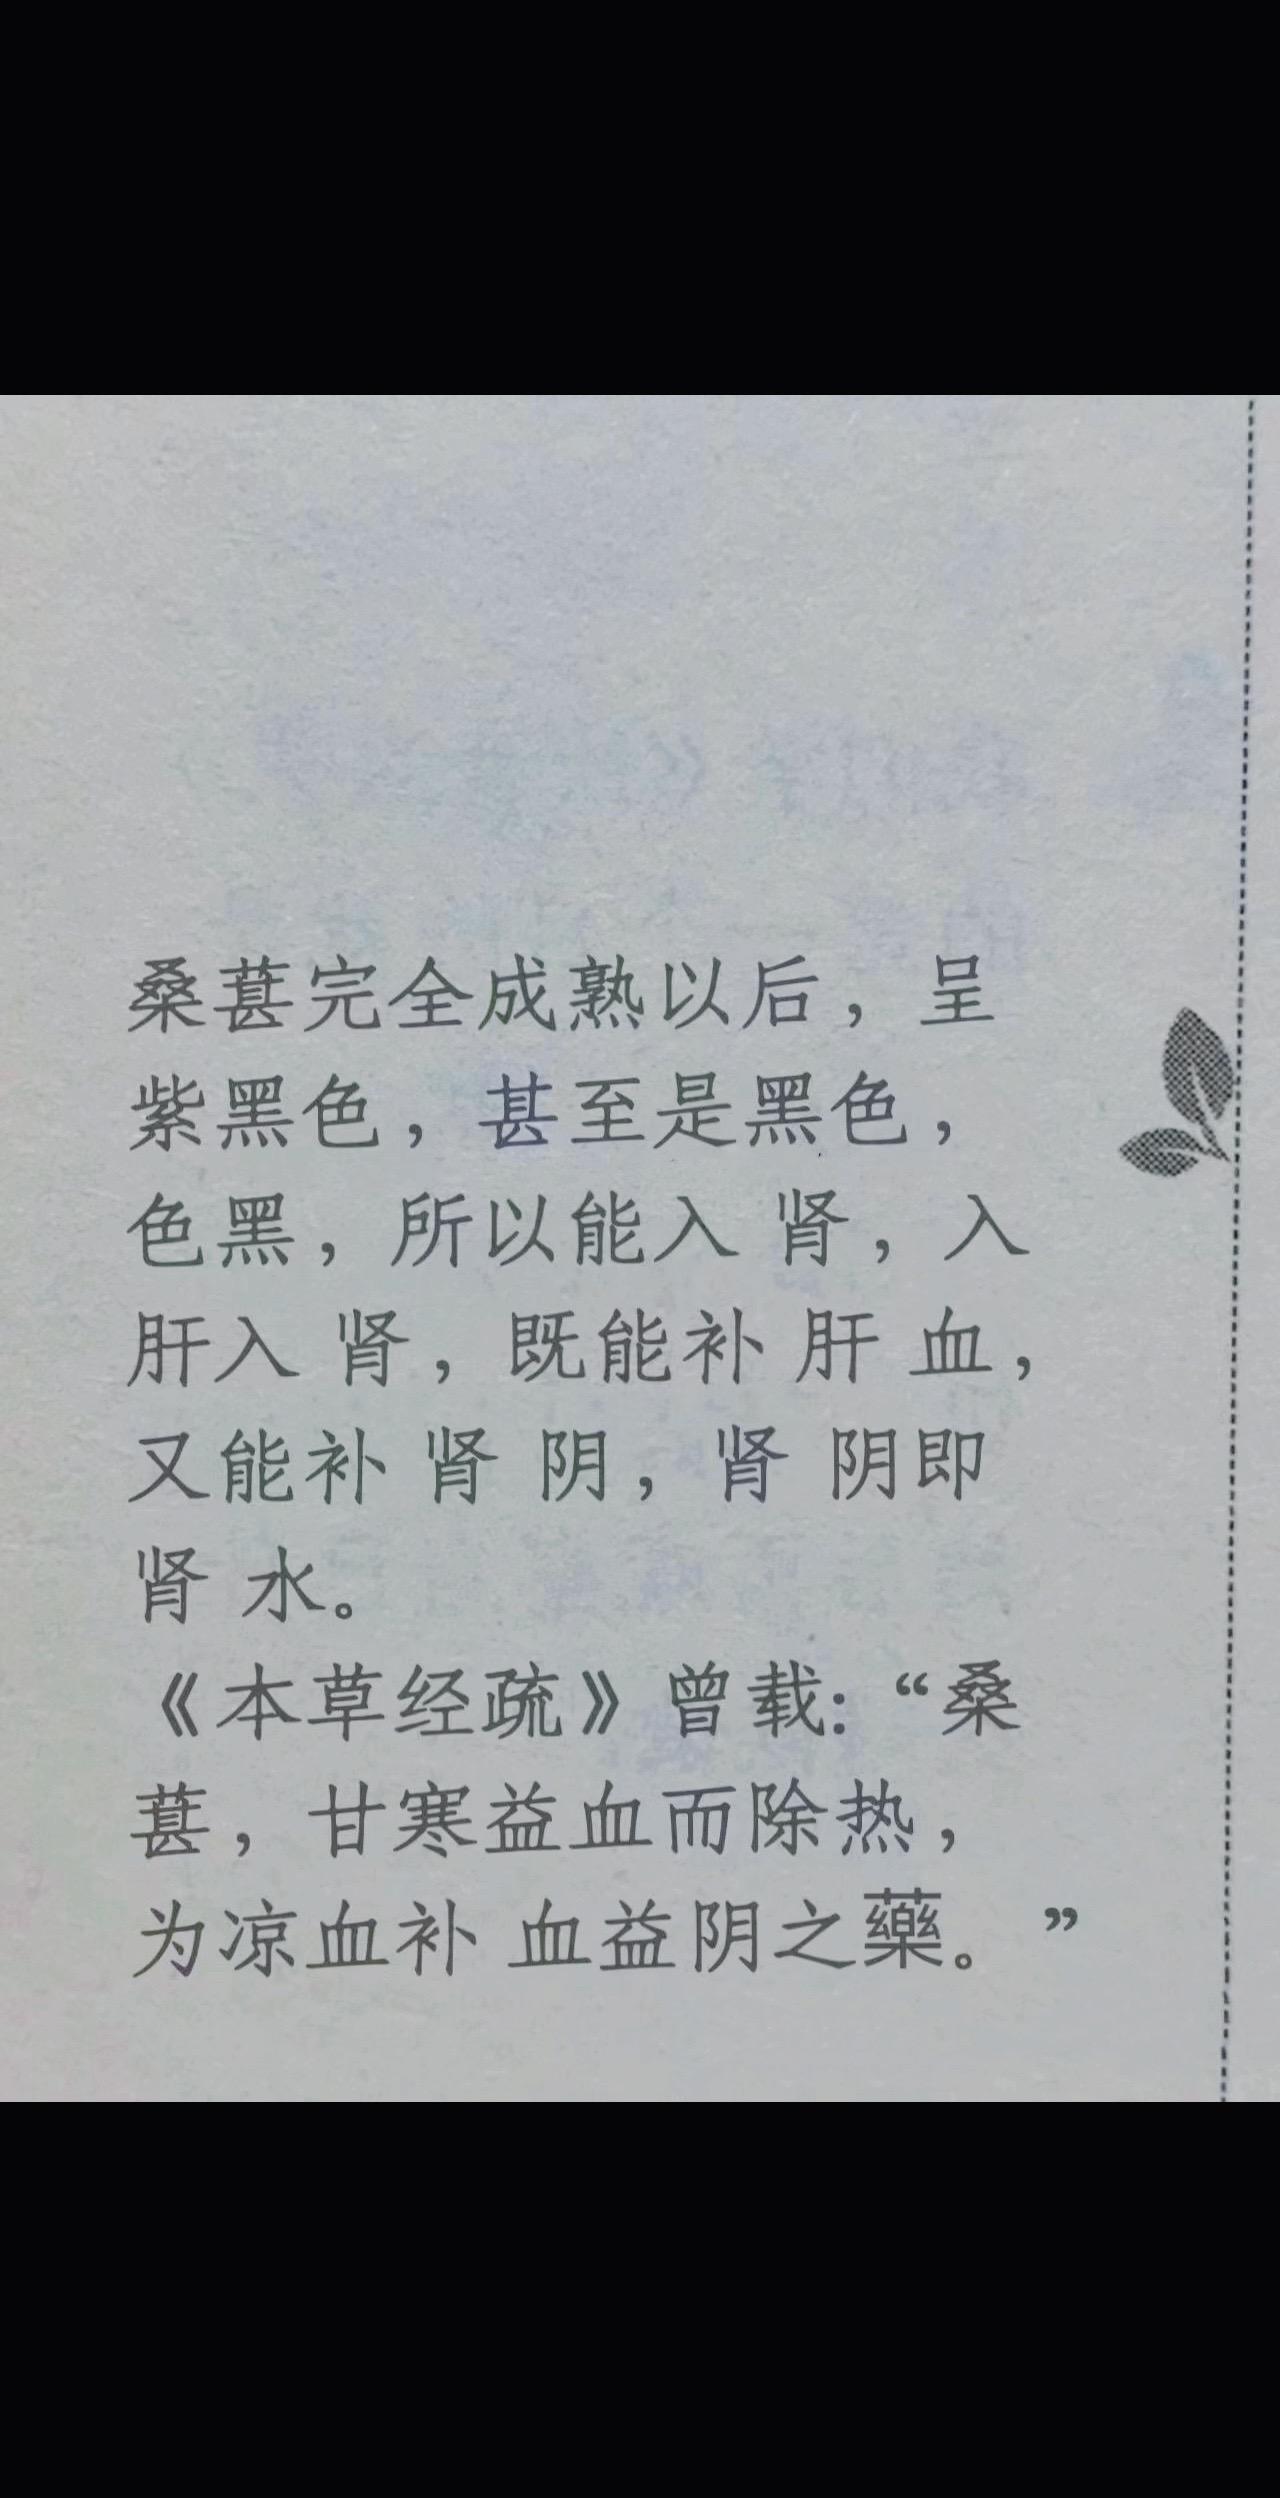 桑葚完全成熟以后，呈
紫黑色，甚至是黑色，
色黑，所以能入 肾，入
肝入 肾，既能补 肝 血，
又能补 肾 阴，肾 阴即
肾 水。
《本草经疏》曾载：“桑
葚，甘寒益血而除热，
为凉血补 血益阴之藥。”